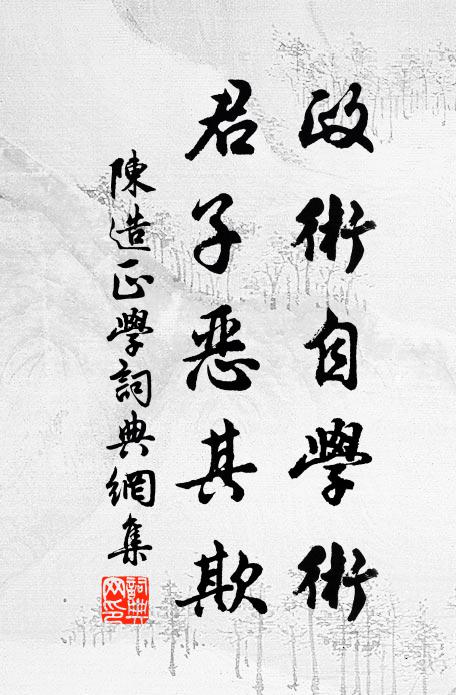 政術自學術
君子惡其欺
陳造正學詞典網集
詞典